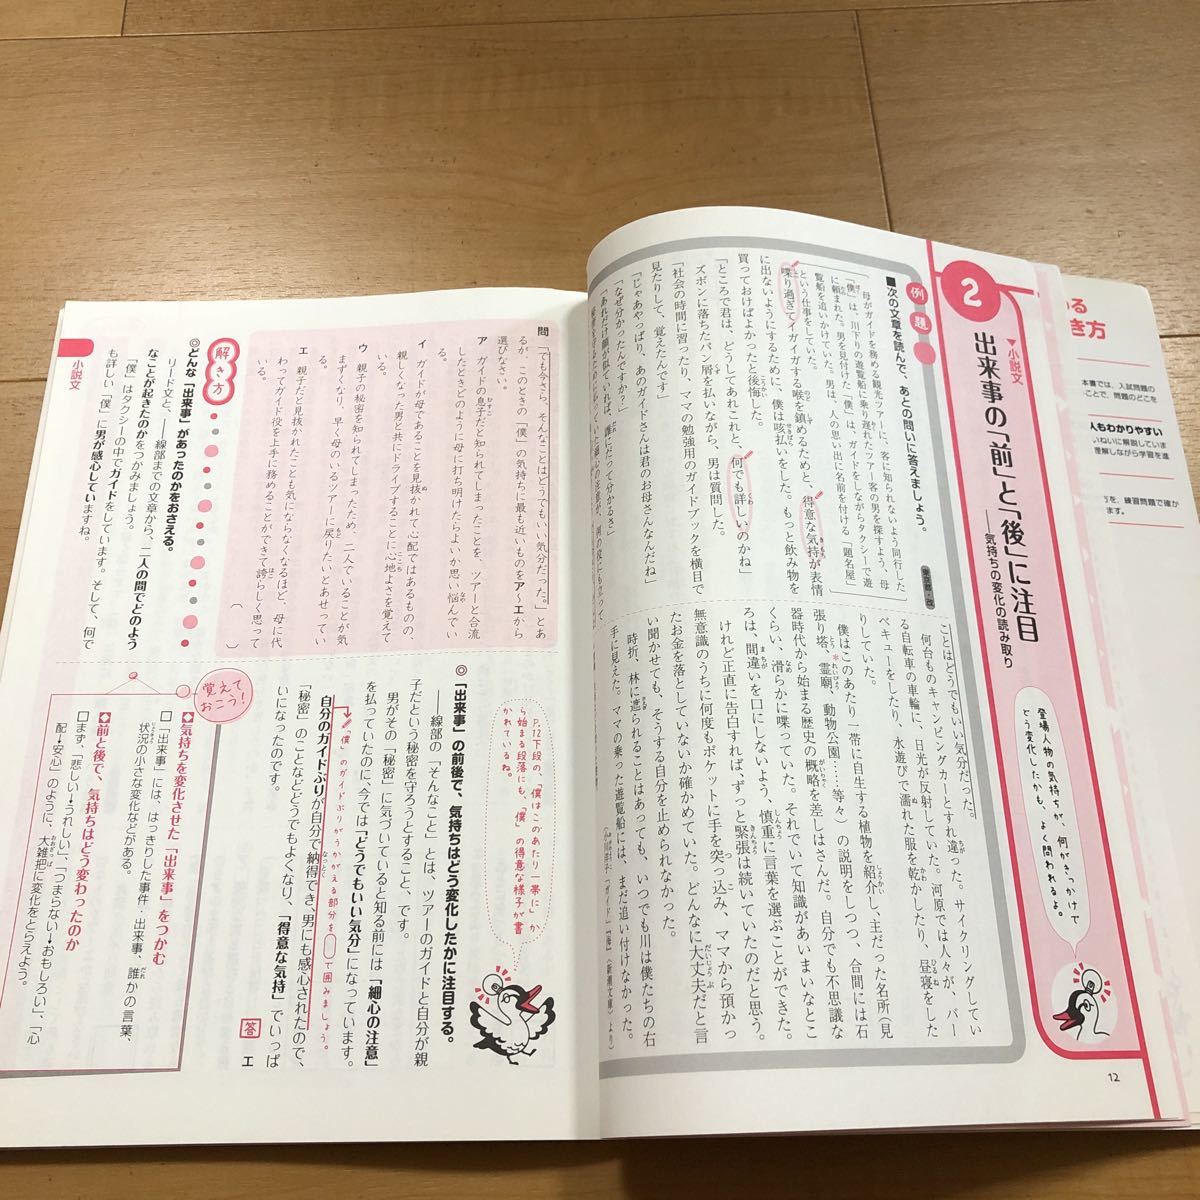 2
▼小説文
出来事の「前」と「後」に注目
――気持ちの変化の読み取り
登場人物の気持ちが、何がきっかけで
どう変化したかも、よく問われるよ。
例題
■次の文章を読んで、あとの問いに答えましょう。
東京都・改
母がガイドを務める観光ツアーに、客に知られないよう同行した
「僕」は、川下りの遊覧船に乗り遅れたツアー客の男を探すよう、母
に頼まれた。男を見付けた「僕」は、ガイドをしながらタクシーで遊
覧船を追いかけていた。男は、人の思い出に名前を付ける「題名屋」
という仕事をしていた。
喋り過ぎてイガイガする喉を鎮めるためと、得意な気持が表情
に出ないようにするために、僕は咳払いをした。もっと飲み物を
買っておけばよかったと後悔した。
「ところで君は、どうしてあれこれと、何でも詳しいのかね」
ズボンに落ちたパン屑を払いながら、男は質問した。
「社会の時間に習ったり、ママの勉強用のガイドブックを横目で
見たりして、覚えたんです」
「じゃあやっぱり、あのガイドさんは君のお母さんなんだね」
「なぜ分かったんですか?」
「あれだけ顔が似ていれば、誰にだって分かるさ」
ことはどうでもいい気分だった。
何台ものキャンピングカーとすれ違った。サイクリングしてい
る自転車の車輪に、日光が反射していた。河原では人々が、バー
ベキューをしたり、水遊びで濡れた服を乾かしたり、昼寝をした
りしていた。
僕はこのあたり一帯に自生する植物を紹介し、主だった名所（見
張り塔、霊廟、動物公園……等々）の説明をしつつ、合間には石
器時代から始まる歴史の概略を差しはさんだ。自分でも不思議な
くらい、滑らかに喋っていた。それでいて知識があいまいなとこ
ろは、間違いを口にしないよう、慎重に言葉を選ぶことができた。
けれど正直に告白すれば、ずっと緊張は続いていたのだと思う。
無意識のうちに何度もポケットに手を突っ込み、ママから預かっ
たお金を落としていないか確かめていた。どんなに大丈夫だと言
い聞かせても、そうする自分を止められなかった。
時折、林に遮られることはあっても、いつでも川は僕たちの右
手に見えた。ママの乗った遊覧船には、まだ追い付けなかった。
「ガイド」『海』〈新潮文庫〉より）
12
問
「でも今さら、そんなことはどうでもいい気分だった。」とあ
るが、このときの「僕」の気持ちに最も近いものをア～エから
選びなさい。
ア ガイドの息子だと知られてしまったことを、ツアーと合流
したときどのように母に打ち明けたらよいか思い悩んでい
る。
イ ガイドが母であることを見抜かれて心配ではあるものの、
親しくなった男と共にドライブすることに心地よさを覚えて
いる。
ウ 親子の秘密を知られてしまったため、二人でいることが気
まずくなり、早く母のいるツアーに戻りたいとあせってい
る。
エ 親子だと見抜かれたことも気にならなくなるほど、母に代
わってガイド役を上手に務めることができて誇らしく思って
いる。
（　　）
解き方
◎どんな「出来事」があったのかをおさえる。
リード文と、――線部までの文章から、二人の間でどのよう
なことが起きたのかをつかみましょう。
「僕」はタクシーの中でガイドをしています。そして、何で
も詳しい「僕」に男が感心していますね。
小説文
P.12下段の、「僕はこのあたり一帯に」か
ら始まる段落にも、「僕」の得意な様子が書
かれているね。
◎「出来事」の前後で、気持ちはどう変化したかに注目する。
――線部の「そんなこと」とは、ツアーのガイドと自分が親
子だという秘密を守ろうとすること、です。
男がその「秘密」に気づいていると知る前には「細心の注意」
を払っていたのに、今では「どうでもいい気分」になっています。
「僕」のガイドぶりがうかがえる部分を○で囲みましょう。
自分のガイドぶりが自分で納得でき、男にも感心されたので、
「秘密」のことなどどうでもよくなり、「得意な気持」でいっぱ
いになったのです。
答 エ
覚えておこう!
◆気持ちを変化させた「出来事」をつかむ
□「出来事」には、はっきりした事件・出来事、誰かの言葉、
状況の小さな変化などがある。
◆前と後で、気持ちはどう変わったのか
□まず、「悲しい→うれしい」、「つまらない→おもしろい」、「心
配→安心」のように、大雑把に変化をとらえよう。
める
き方
本書では、入試問題の
ことで、問題のどこを
人もわかりやすい
いねいに解説していま
理解しながら学習を進
方を、練習問題で確か
ます。